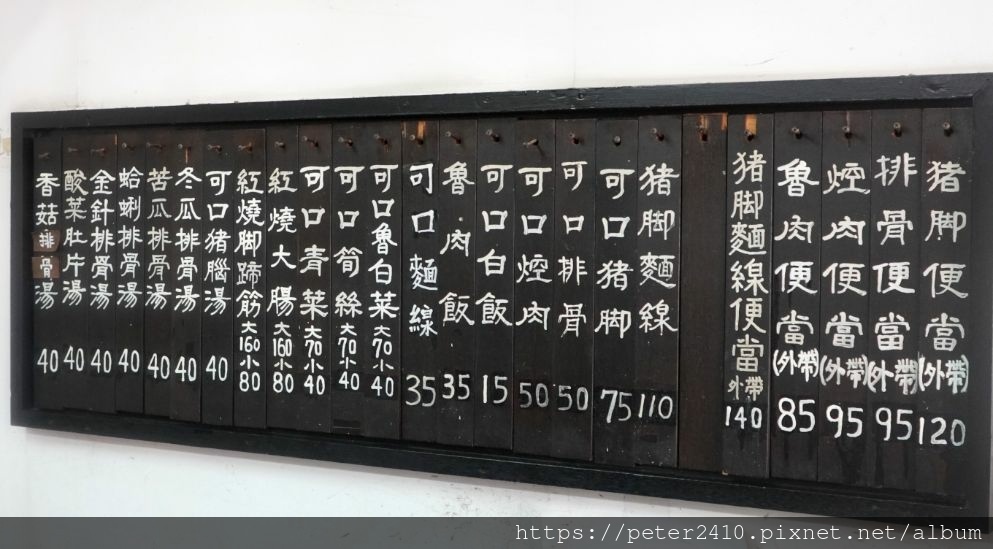 猪脚便當(外帶)120
排骨便當(外帶)95
焢肉便當(外帶)95
魯肉便當(外帶)85
猪脚麵線便當外帶140
猪脚麵線110
可口猪脚75
可口排骨50
可口焢肉50
可口白飯15
魯肉飯35
可口麵線35
可口魯白菜大70小40
可口筍絲大70小40
可口青菜大70小40
紅燒大腸大160小80
紅燒脚蹄筋大160小80
可口猪腦湯40
冬瓜排骨湯40
苦瓜排骨湯40
蛤蜊排骨湯40
金針排骨湯40
酸菜肚片湯40
香菇排骨湯40
https://peter2410.pixnet.net/album